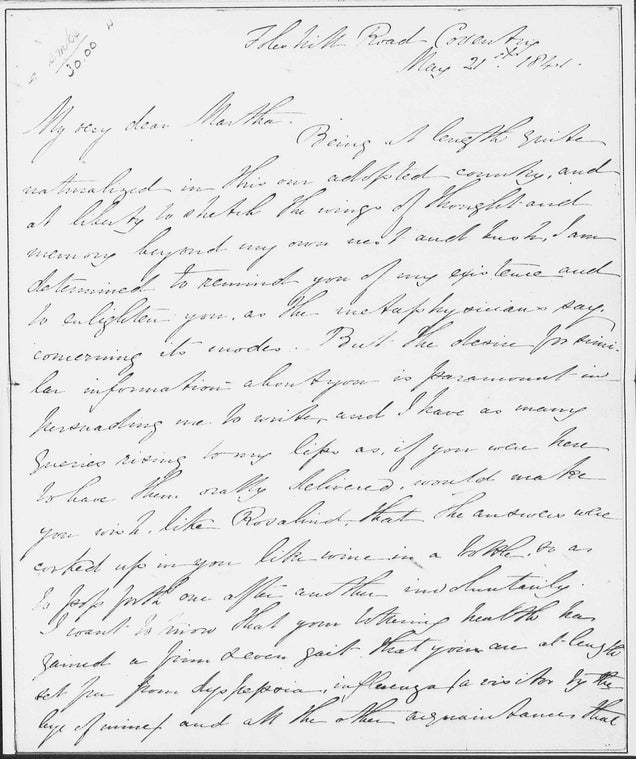 30.00
Foleshill Road Coventry
May 21st. 1841.
My very dear Martha.
Being at length quite
naturalized in this our adopted country, and
at liberty to stretch the wings of thought and
memory beyond my own nest and bush, I am
determined to remind you of my existence and
to enlighten you, as the metaphysicians say,
concerning its modes. But the desire for simi-
lar information about you is paramount in
persuading me to write, and I have as many
queries rising to my lips as, if you were here
to have them orally delivered, would make
you wish, like Rosalind, that the answers were
corked up in you like wine in a bottle, so as
to pop forth one after another involuntarily.
I want to know that your tottering health has
gained a firm & even gait that you are at length
set free from dyspepsia, influenza (a visitor by the
bye of mine) and all the other acquaintances that